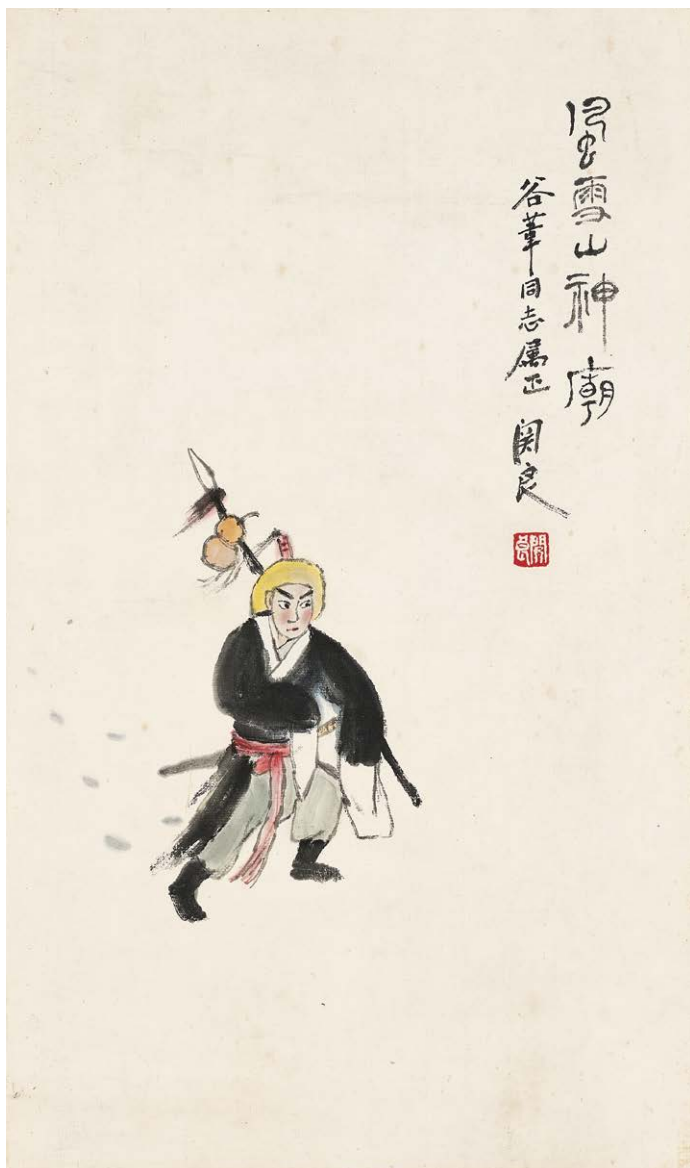 风雪山神廟
谷葦同志属正 関良
關良